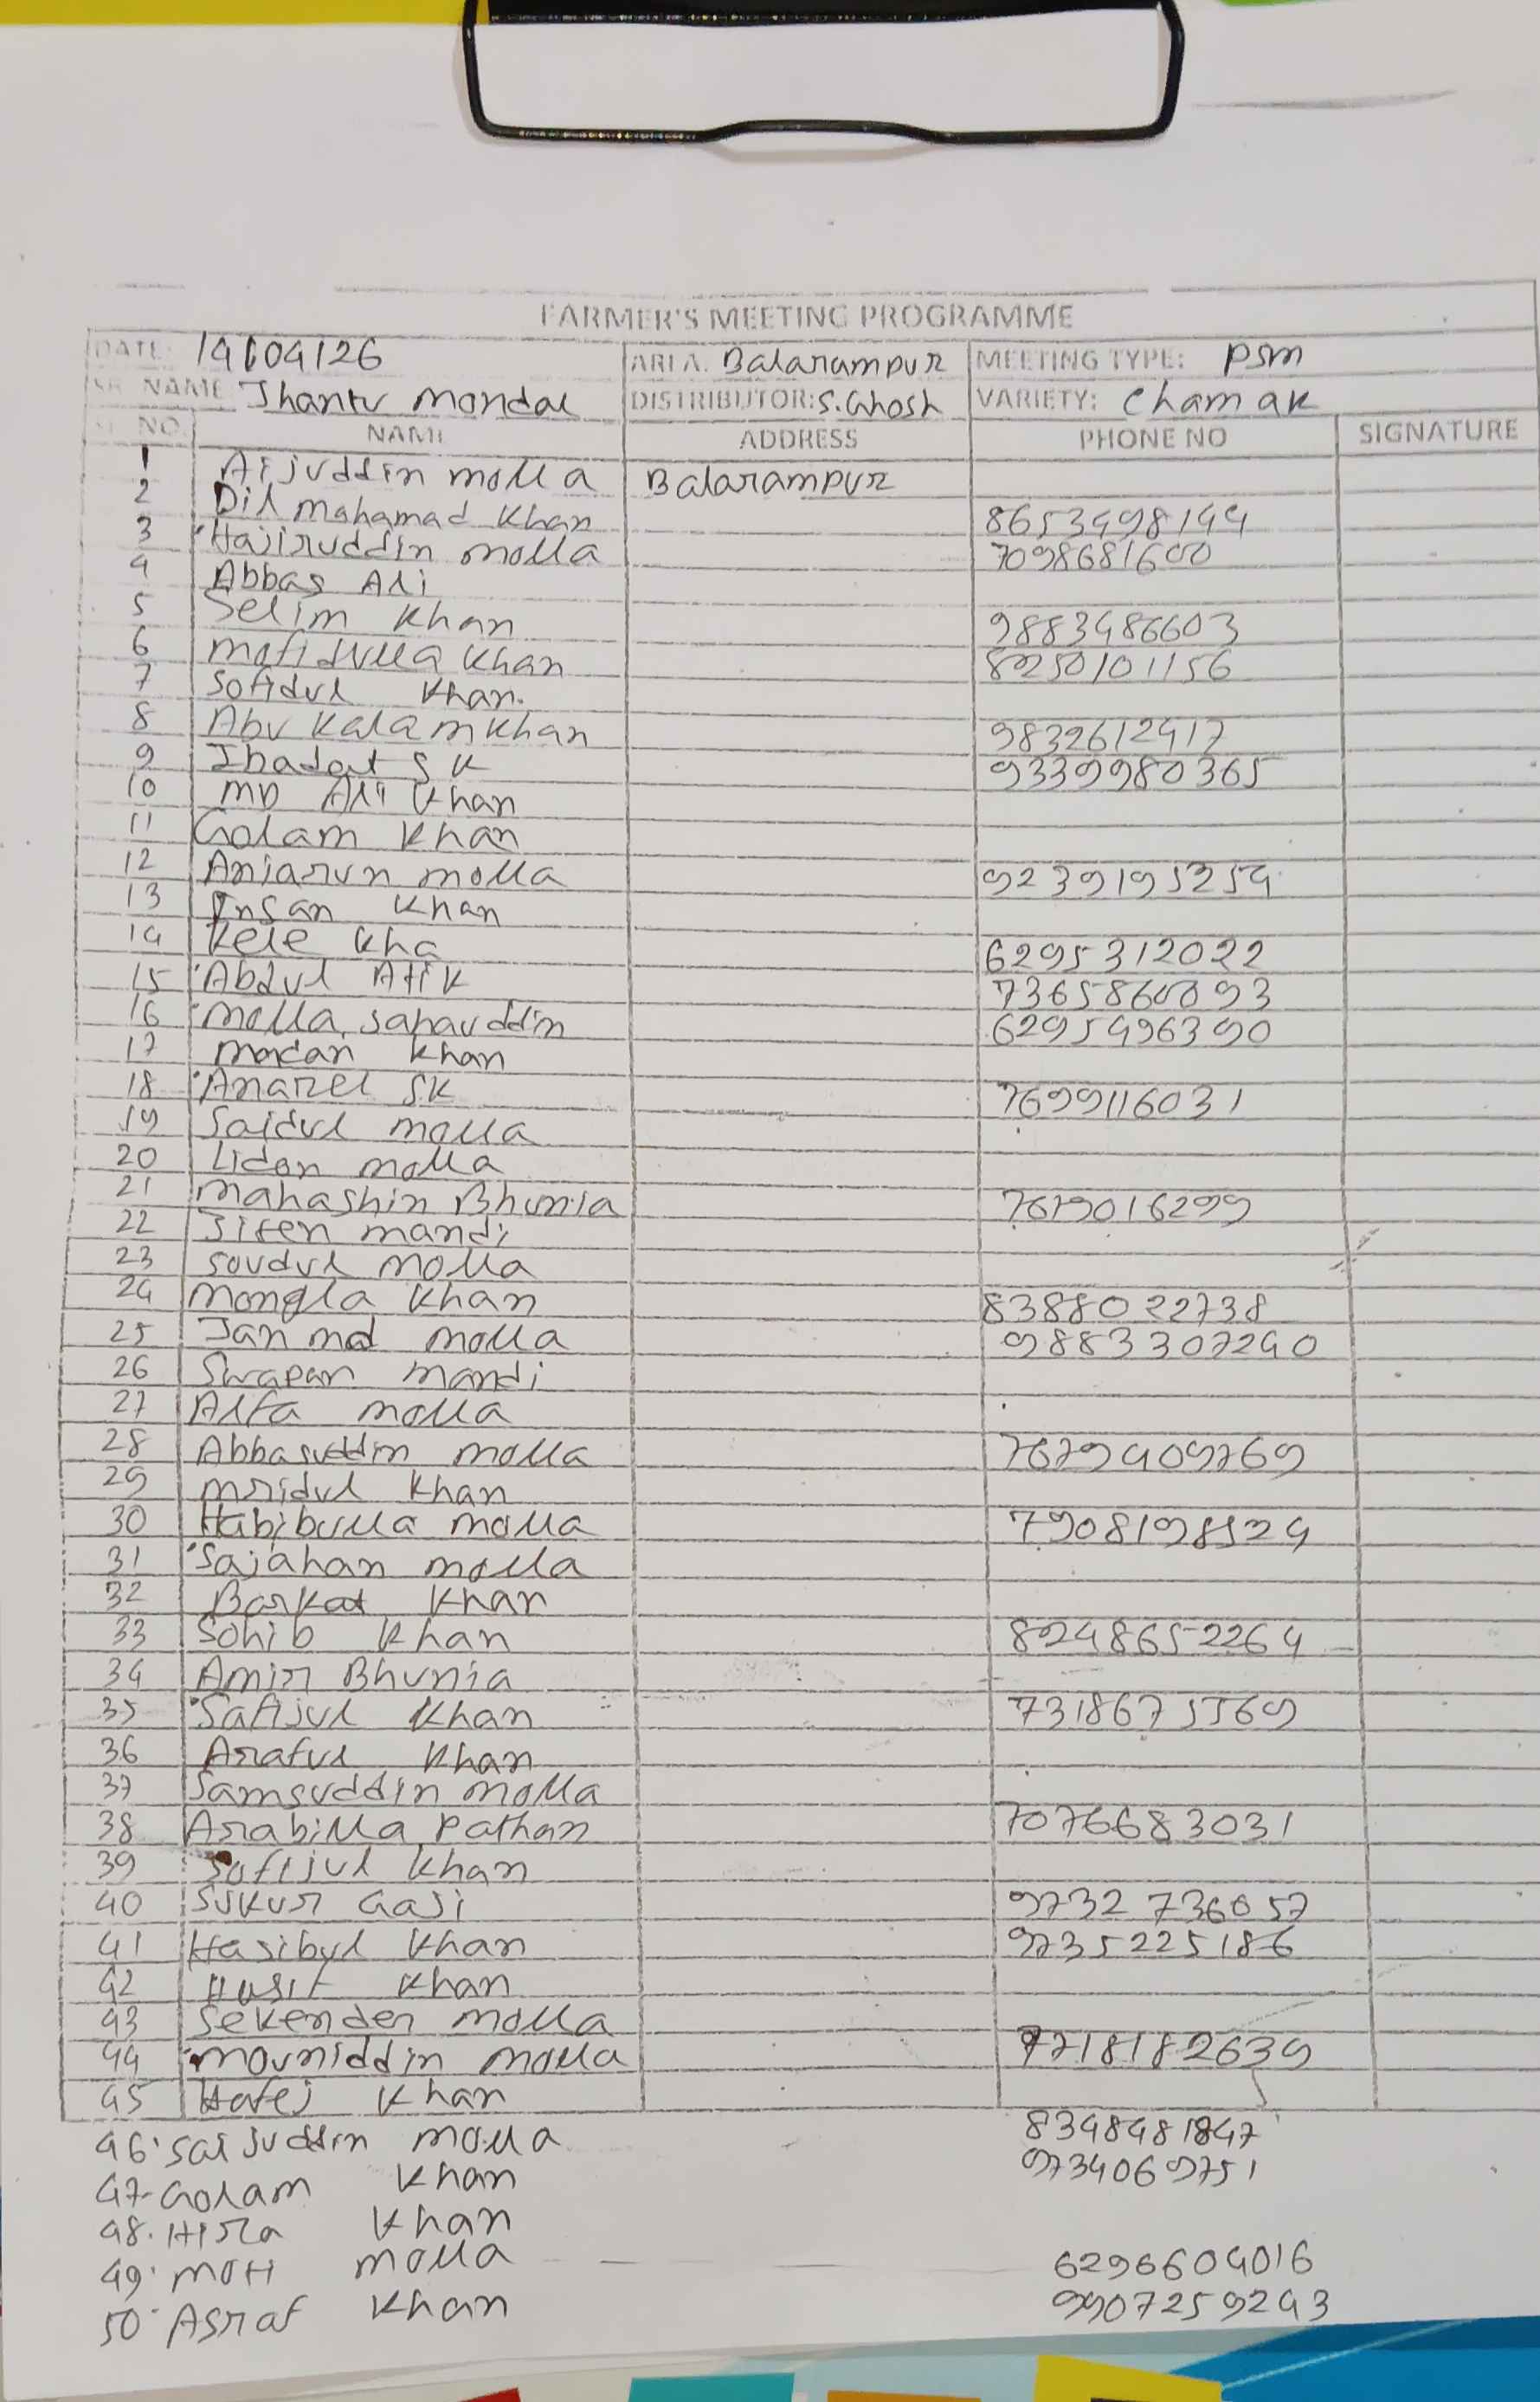 FARMER'S MEETING PROGRAMME
DATE: 14/04/26 AREA: Balarampur MEETING TYPE: PSM
SR. NAME Jhantu Mondal DISTRIBUTOR: S. Ghosh VARIETY: Chamak
SL. NO. NAME ADDRESS PHONE NO SIGNATURE
1 Aijuddin molla Balarampur
2 Dil mahamad Khan 8653498144
3 Hajiruddin molla 7098681600
4 Abbas Ali
5 Selim Khan 9883486603
6 mafidulla Khan 8250101156
7 Sofidul Khan
8 Abu Kalam Khan 9832612417
9 Ibadat SK 9339980365
10 MD Ali Khan
11 Golam Khan
12 Anjarun molla 9239195254
13 Insan Khan
14 Kele Kha 6295312022
15 Abdul Atik 7365860093
16 Molla Sahauddin 6295496390
17 Madan Khan
18 Anarel SK 7699116031
19 Saidul molla
20 Lidon molla
21 Mahashin Bhunia 7679016299
22 Jiten mandi
23 Soudul molla
24 Mongla Khan 8388022738
25 Jan md molla 9883307240
26 Swapan mandi
27 Alfa molla
28 Abbasuddin molla 7679409769
29 Mridul Khan
30 Habibulla molla 7908198524
31 Sajahan molla
32 Barkat Khan
33 Sohib Khan 8248652264
34 Amir Bhunia
35 Safijul Khan 7318675569
36 Araful Khan
37 Samsuddin molla
38 Arabilla Pathan 7076683031
39 Safijul Khan
40 Sukur Gaji 9732736057
41 Hasibul Khan 9735225186
42 Khan
43 Sekender molla
44 Mouniddin molla 7718182639
45 Hafej Khan
46. Saijuddin molla 8348481847
47. Golam Khan 9734069751
48. Hira Khan
49. Moti molla 6296604016
50. Asraf Khan 9907259243